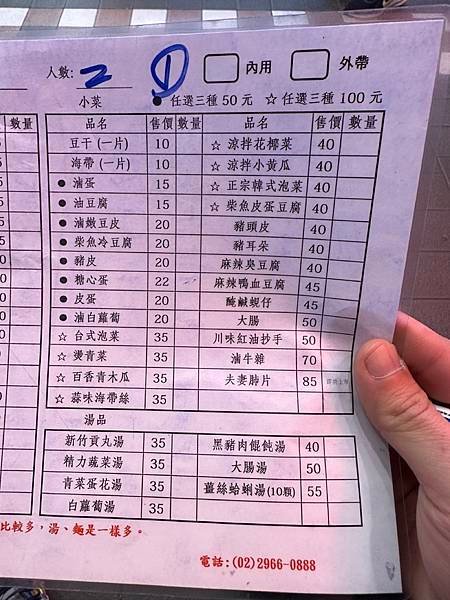 人數: 2 ① 內用 外帶
小菜 ● 任選三種 50 元 ☆ 任選三種 100 元
數量 品名 售價 數量 品名 售價 數量
豆干 (一片) 10 ☆ 涼拌花椰菜 40
海帶 (一片) 10 ☆ 涼拌小黃瓜 40
● 滷蛋 15 ☆ 正宗韓式泡菜 40
● 油豆腐 15 ☆ 柴魚皮蛋豆腐 40
● 滷嫩豆皮 20 豬頭皮 40
● 柴魚冷豆腐 20 豬耳朵 40
● 豬皮 20 麻辣臭豆腐 40
● 糖心蛋 22 麻辣鴨血豆腐 45
● 皮蛋 20 醃鹹蜆仔 45
● 滷白蘿蔔 20 大腸 50
☆ 台式泡菜 35 川味紅油抄手 50
☆ 燙青菜 35 滷牛雜 70
☆ 百香青木瓜 35 夫妻肺片 85
☆ 蒜味海帶絲 35
湯品
新竹貢丸湯 35 黑豬肉餛飩湯 40
精力蔬菜湯 35 大腸湯 50
青菜蛋花湯 35 薑絲蛤蜊湯(10顆) 55
白蘿蔔湯 35
比較多，湯、麵是一樣多。
電話:(02)2966-0888